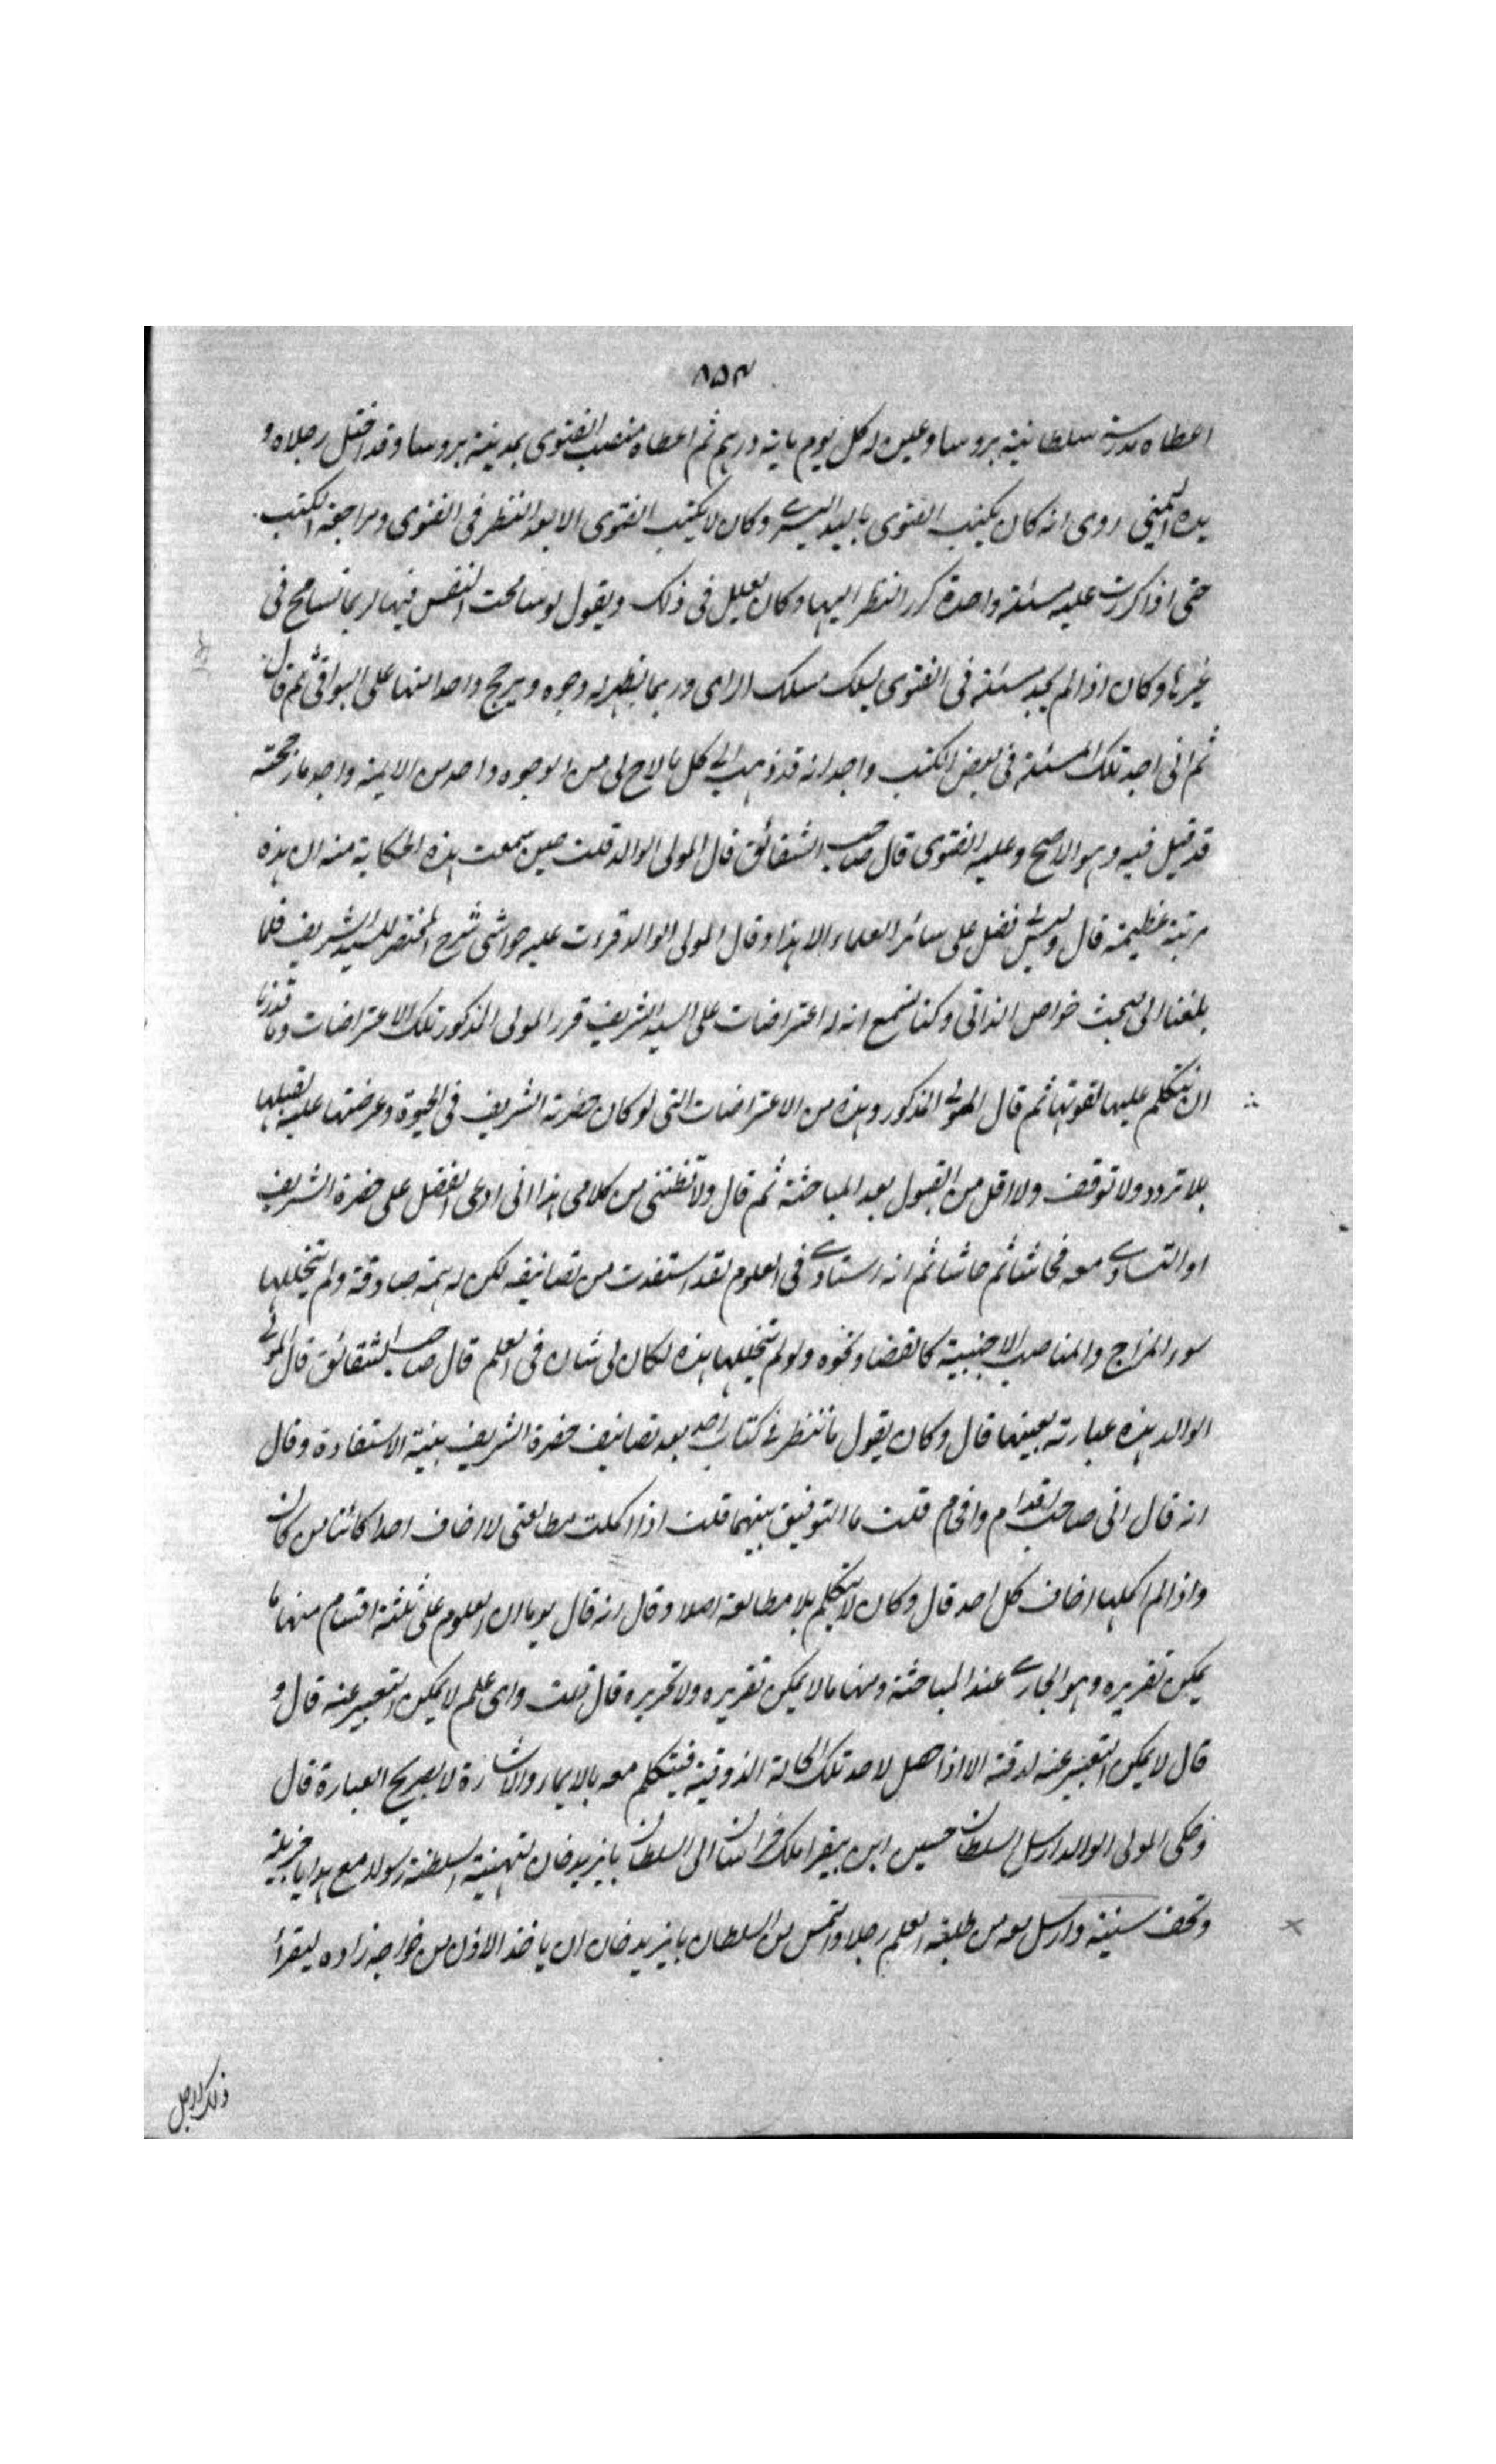 ٨٥٣
اعطاه مدرسة سلطانية بروسا وعين له كل يوم ماية درهم ثم اعطاه منصب الفتوى بمدينة بروسا وقد اختل رجلاه و
يده اليمنى روى انه كان يكتب الفتوى باليد اليسرى وكان لا يكتب الفتوى الا بعد النظر فى الفتوى ومراجعة الكتب
حتى اذا كررت عليه مسئلة واحدة كرر النظر اليها وكان يعلل فى ذلك ويقول لو سامحت النفس فيها لربما تسامح فى
غيرها وكان اذا لم يجد مسئلة فى الفتوى يسلك مسلك الراى وربما يظهر له وجوه ويرجح واحدا منها على البواقى ثم قال
ثم انى اجد تلك المسئلة فى بعض الكتب واجد انه قد ذهب الى كل ما لاح لى من الوجوه واحد من الايمة واجد ما رجحته
قد قيل فيه وهو الاصح وعليه الفتوى قال صاحب الشقائق قال المولى الوالد قلت حين سمعت هذه الحكاية منه ان هذه
مرتبة عظيمة قال وليس لى فضل على سائر العلماء الا هذا وقال المولى الوالد قرءت عليه حواشى شرح المختصر للسيد الشريف فلما
بلغنا الى مبحث خواص الذاتى وكنا نسمع انه له اعتراضات على السيد الشريف قرر المولى المذكور تلك الاعتراضات وما قدرنا
ان نتكلم عليها لقوتها ثم قال المولى المذكور وهذه من الاعتراضات التى لو كان حضرته الشريف فى الحيوة وعرضتها عليه لقبلها
بلا تردد ولا توقف ولا اقل من القبول بعد المباحثة ثم قال ولا تظننى من كلامى هذا انى ادعى الفضل على حضرة الشريف
او التساوى معه فحاشا ثم حاشا ثم انه استادى فى العلوم لقد استفدت من تصانيفه لكن له همة صادقة ولم يتخللها
سوء المزاج والمناصب الاجنبية كالقضا ونحوه ولو لم تتخللها هذه لكان لى شان فى العلم قال صاحب الشقائق قال المولى
الوالد هذه عبارته بعينها قال وكان يقول ما نظر فى كتاب احد بعد تصانيف حضرة الشريف بنية الاستفادة وقال
انه قال انى صاحب اقدام واحجام قلت ما التوفيق بينهما قلت اذا اكملت مطالعتى لا اخاف احدا كائنا من كان
واذا لم اكملها اخاف كل احد قال وكان لا يتكلم بلا مطالعة اصلا وقال انه قال يوما ان العلوم على ثلثة اقسام منها ما
يمكن تقريره وهو الجارى عند المباحثة ومنها ما لا يمكن تقريره ولا تحريره قال قلت واى علم لا يمكن التعبير عنه قال و
قال لا يمكن التعبير عنه لدقته الا اذا حصل لاحد تلك الحالة الذوقية فيتكلم معه بالايماء والاشارة لا بصريح العبارة قال
وحكى المولى الوالد ارسل السلطان حسين ابن بيقرا ملك خراسان الى السلطان بايزيد خان لتهنية السلطنة رسولا مع هدايا جزيلة
وتحف سنية وارسل معه من طلبة العلم رجلا والتمس من السلطان بايزيد خان ان ياخذ الاذن من خواجه زاده ليقرأ
ذلك الرجل